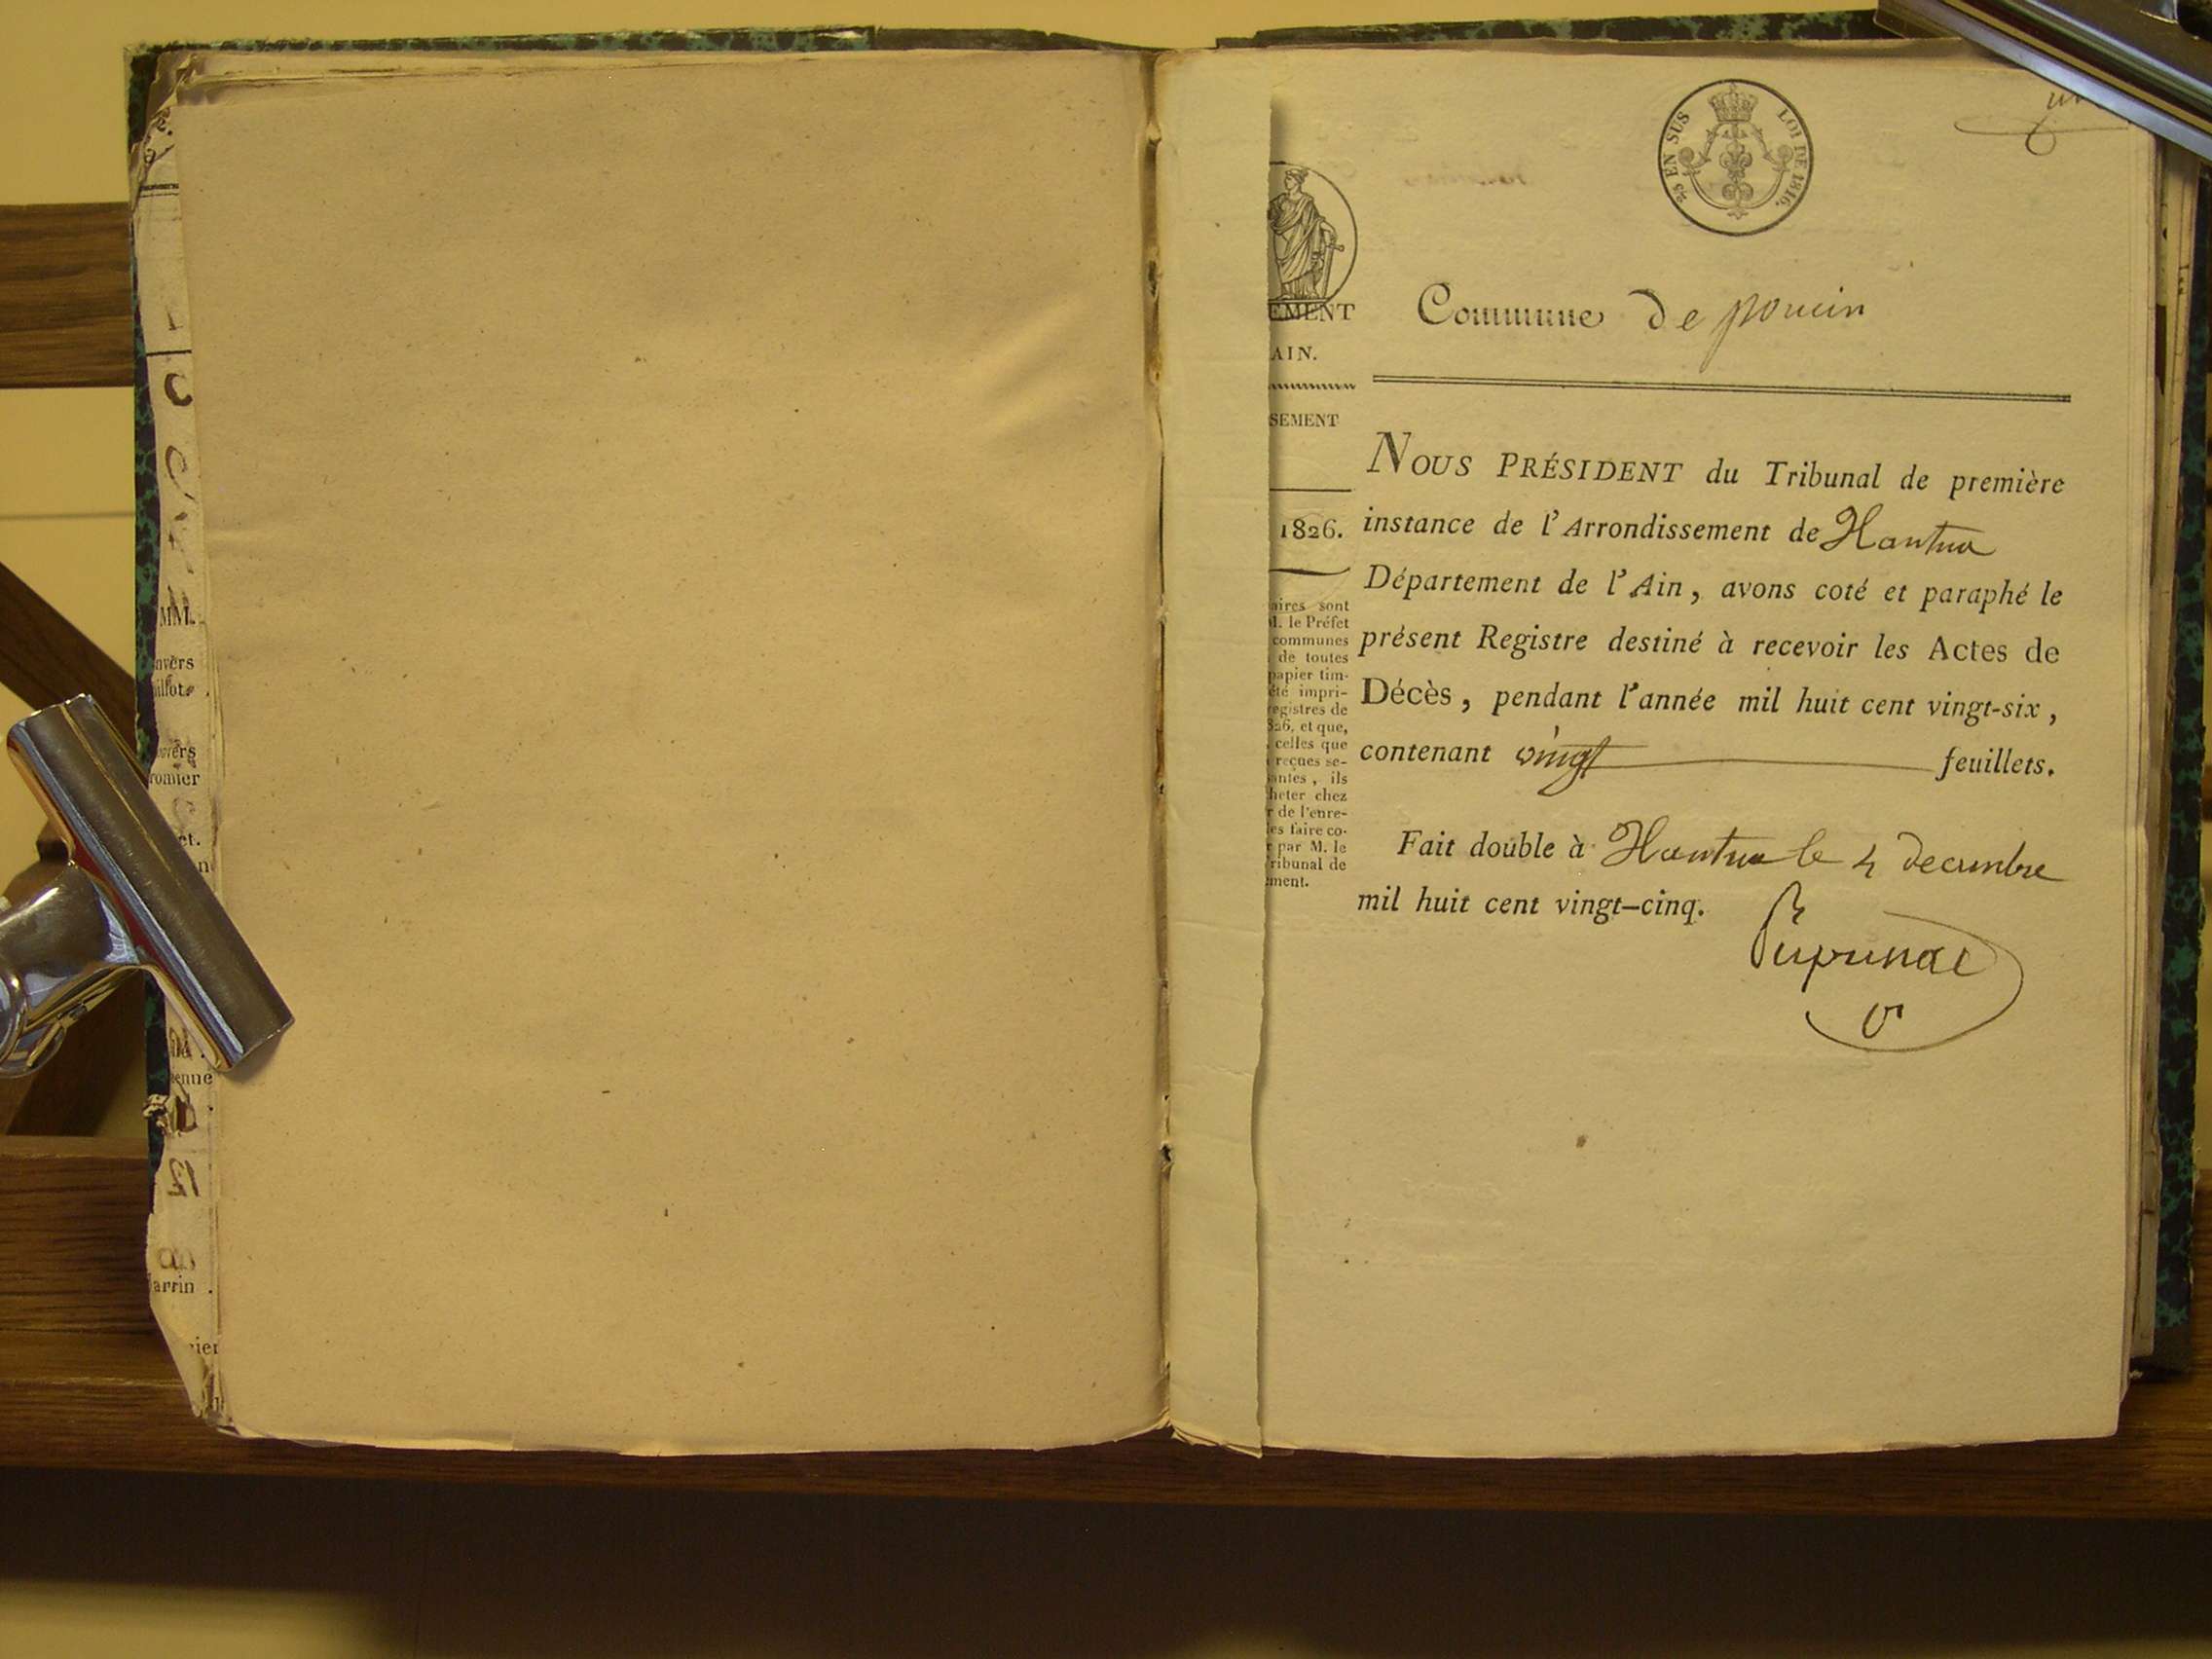 MM.
nvers
arrin
25 EN SUS LOI DE 1816.
EMENT
AIN.
SEMENT
1826.
aires sont
M. le Préfet
communes
de toutes
papier tim-
été impri-
registres de
826, et que,
celles que
reçues se-
antes, ils
heter chez
r de l'enre-
es faire co-
r par M. le
ribunal de
ment.
Commune de poncin
NOUS PRÉSIDENT du Tribunal de première
instance de l'Arrondissement de Nantua
Département de l'Ain, avons coté et paraphé le
présent Registre destiné à recevoir les Actes de
Décès, pendant l'année mil huit cent vingt-six,
contenant vingt feuillets.
Fait double à Nantua le 4 decembre
mil huit cent vingt-cinq.